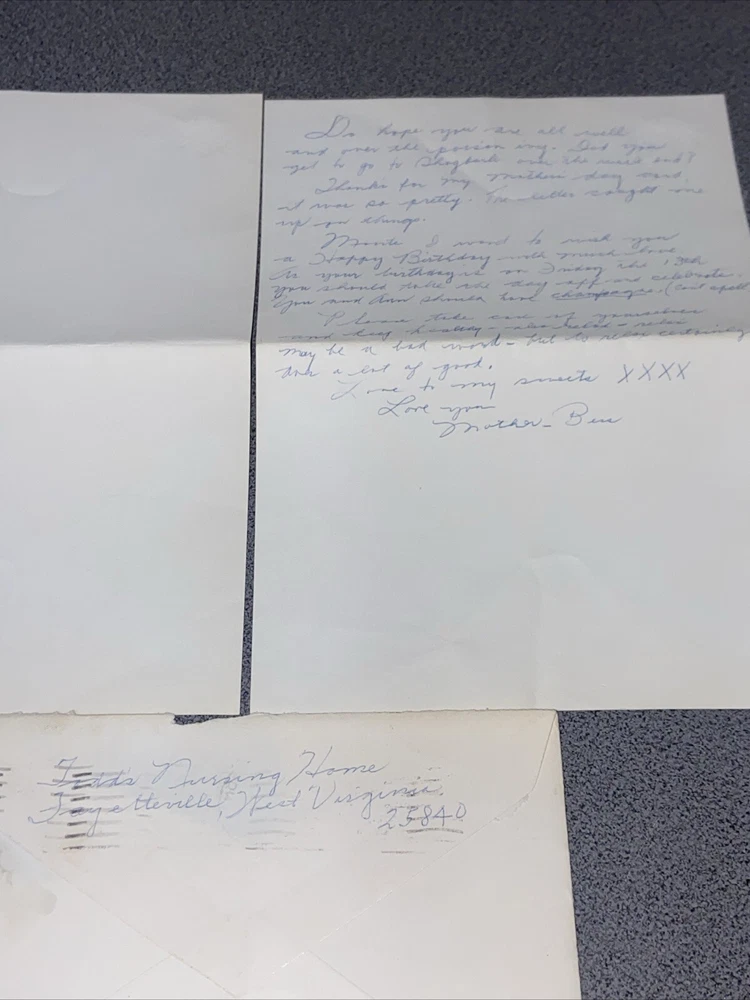 Do hope you are all well
and over the poison ivy. Did you
get to go to over the week end?
Thanks for my mothers day card,
it was so pretty. The letter caught me
up on things.
I want to wish you
a Happy Birthday with much love
As your birthday is on Friday the 13th
you should take the day off and celebrate.
You and Ann should have champagne. (Can't spell
Please take care of yourselves
and
may be a bad word - but to relax certainly
does a lot of good.
Love to my sweets XXXX
Love you
Mother - Bess
Nursing Home
Fayetteville, West Virginia.
25840